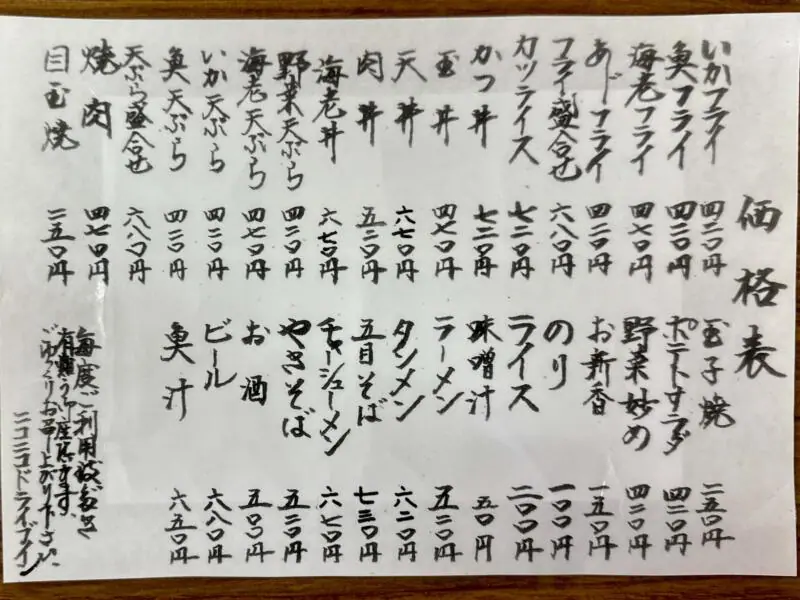 価格表
いかフライ 四二〇円
魚フライ 四二〇円
海老フライ 四七〇円
あじフライ 四二〇円
フライ盛合せ 六八〇円
カツライス 七二〇円
かつ丼 七二〇円
玉丼 四七〇円
天丼 六七〇円
肉丼 五二〇円
海老丼 六七〇円
野菜天ぷら 四二〇円
海老天ぷら 四七〇円
いか天ぷら 四二〇円
魚天ぷら 四二〇円
天ぷら盛合せ 六八〇円
焼肉 四七〇円
目玉焼 二五〇円
玉子焼 二五〇円
ポテトサラダ 四二〇円
野菜炒め 四二〇円
お新香 一五〇円
のり 一〇〇円
ライス 二〇〇円
味噌汁 五〇円
ラーメン 五二〇円
タンメン 六二〇円
五目そば 七三〇円
チャーシューメン 六七〇円
やきそば 五二〇円
お酒 五〇〇円
ビール 六八〇円
魚汁 六五〇円
毎度ご利用頂き
有難う御座居ます、
ごゆっくりお召し上がり下さい、
ニコニコドライブイン